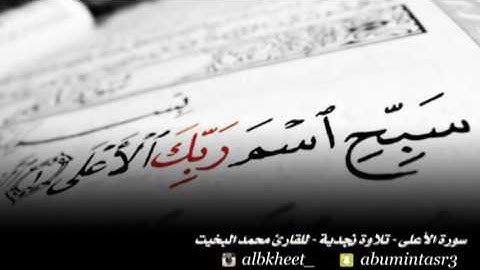 بسم
سَبِّحِ ٱسْمَ رَبِّكَ ٱلْأَعْلَى
سورة الأعلى - تلاوة نجدية - للقارئ محمد البخيت
albkheet_ abumintasr3